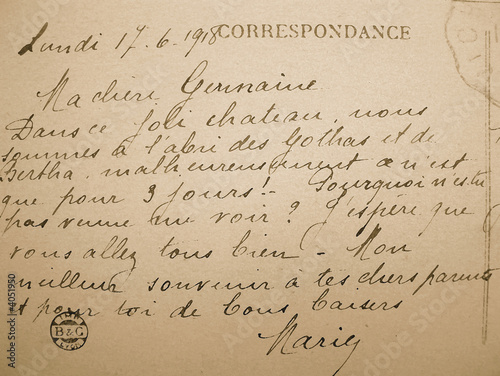 CORRESPONDANCE
Lundi 17.6.1918
Ma chère Germaine
Dans ce joli chateau, nous
sommes à l'abri des Gothas et de
Bertha, malheureusement ce n'est
que pour 3 jours!- Pourquoi n'es tu
pas venue me voir? J'espère que
vous allez tous bien - Mon
meilleur souvenir à tes chers parents
et pour toi de bons baisers
B&C
LYON
Adobe Stock
Adobe Stock | #4051950